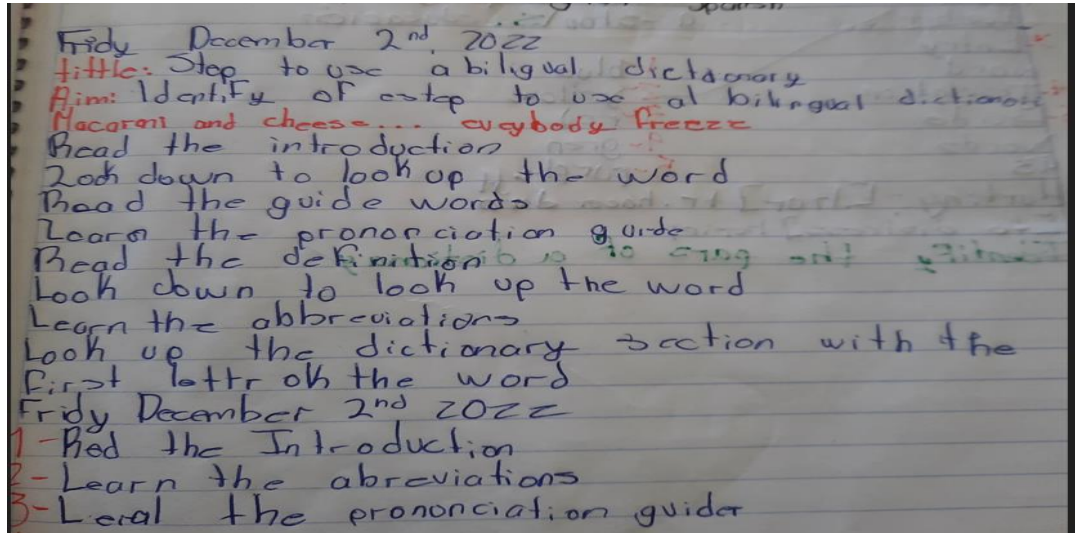 Fridy December 2nd 2022
tittle: Step to use a biligual dictaonary
Aim: Identify of estep to use al bilingual dictionari
Macaroni and cheese... eveybody freeze
Read the introduction
Look down to look up the word
Read the guide words
Learn the prononciation guide
Read the definition
Look down to look up the word
Learn the abbreviations
Look up the dictionary section with the
first lettr oh the word
Fridy December 2nd 2022
1-Red the Introduction
2-Learn the abreviations
3-Leral the prononciation guider